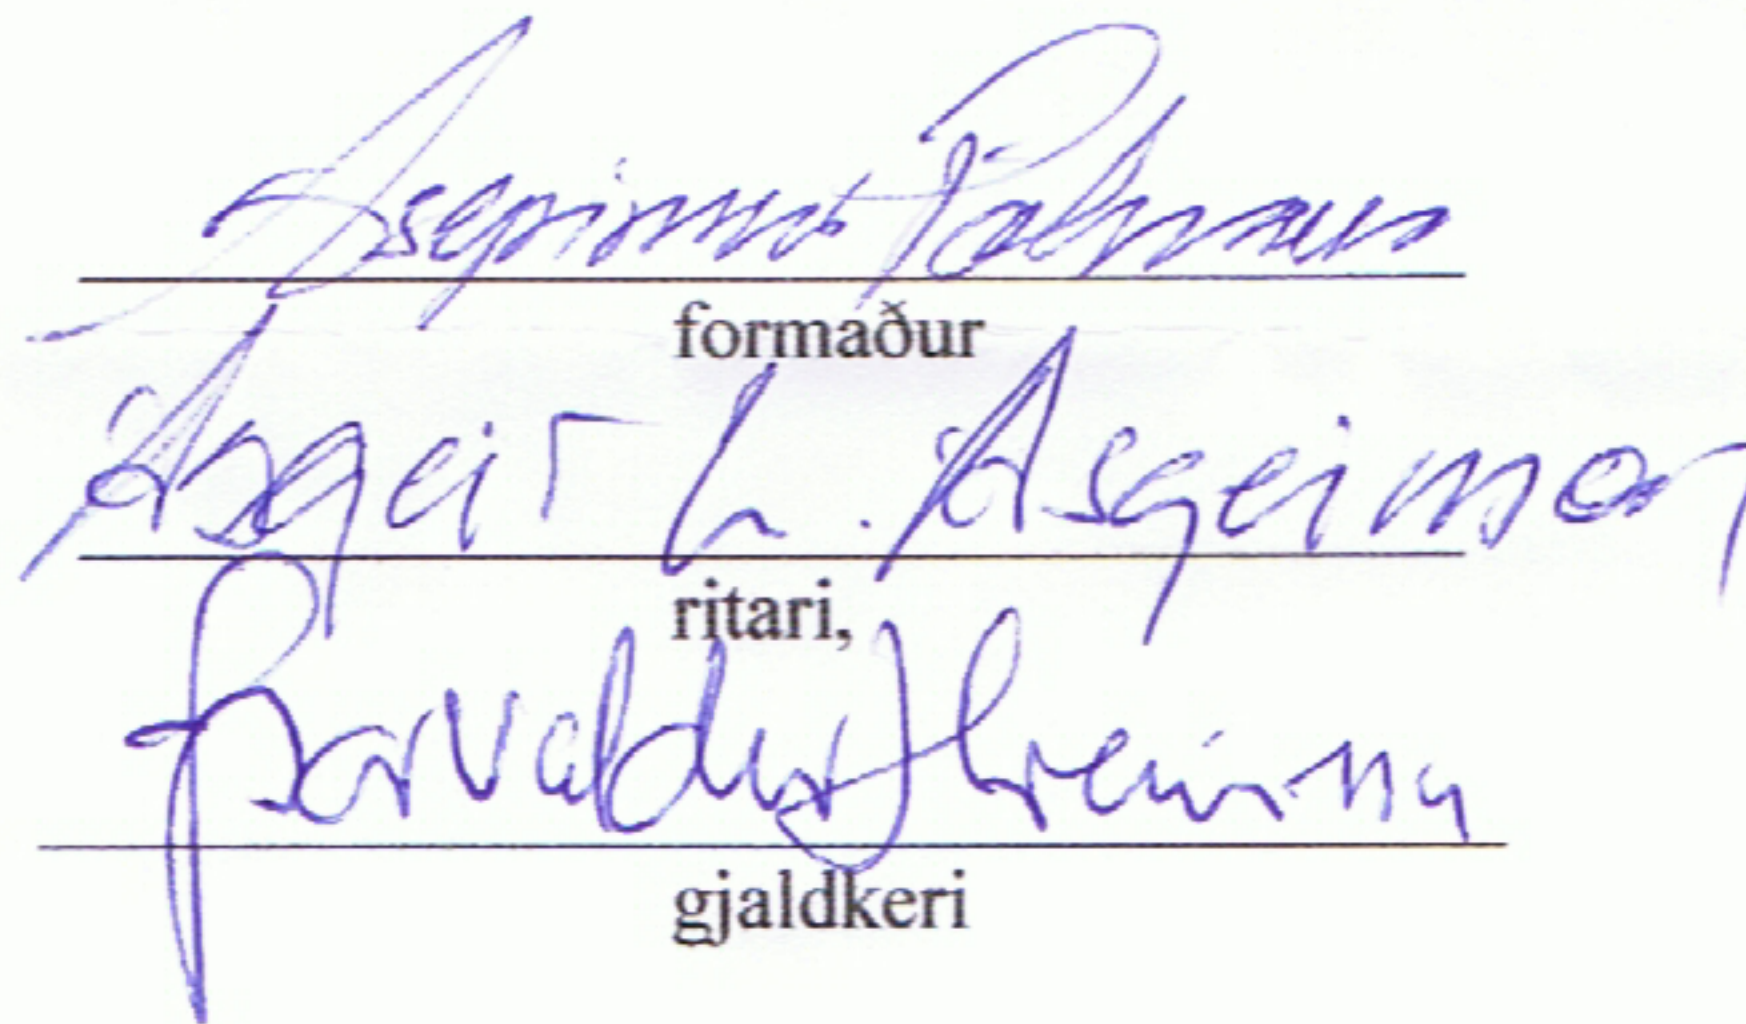 Ásgrímur Pálmason
formaður
Ásgeir L. Ásgeirsson
ritari,
Þorvaldur Hreinsson
gjaldkeri